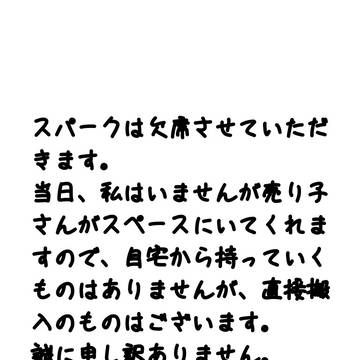 スパークは欠席させていただ
きます。
当日、私はいませんが売り子
さんがスペースにいてくれま
すので、自宅から持っていく
ものはありませんが、直接搬
入のものはございます。
誠に申し訳ありません。